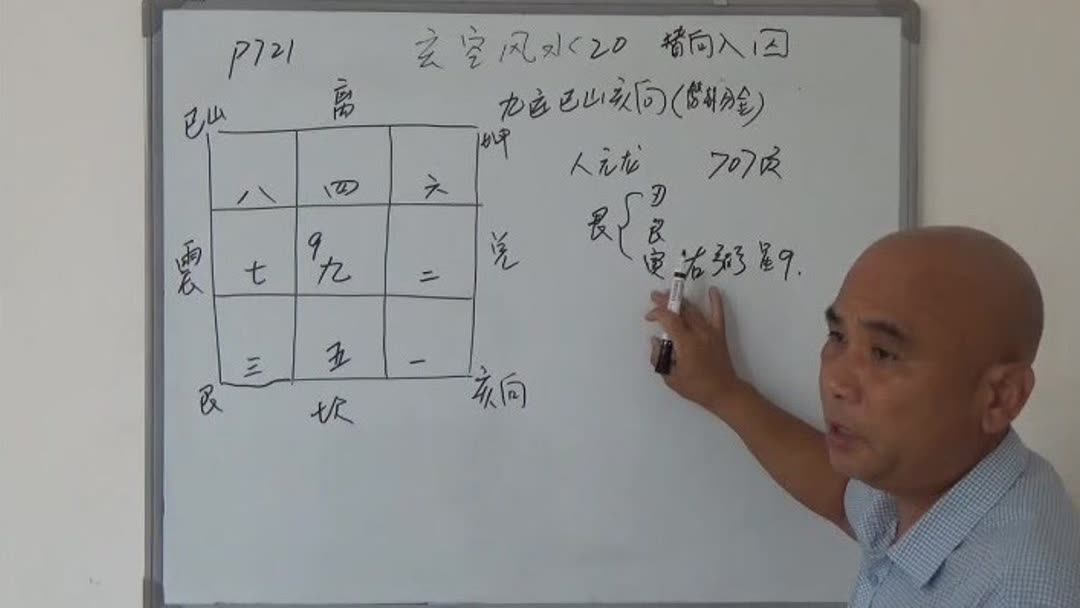 P721 玄空风水<20 替向入囚
九运巳山亥向(兼分金)
人元龙 707页
巳山 离 坤
八 四 六
震 七 9 九 二 兑
三 五 一
艮 坎 亥向
艮{
艮
寅 右弼星9.